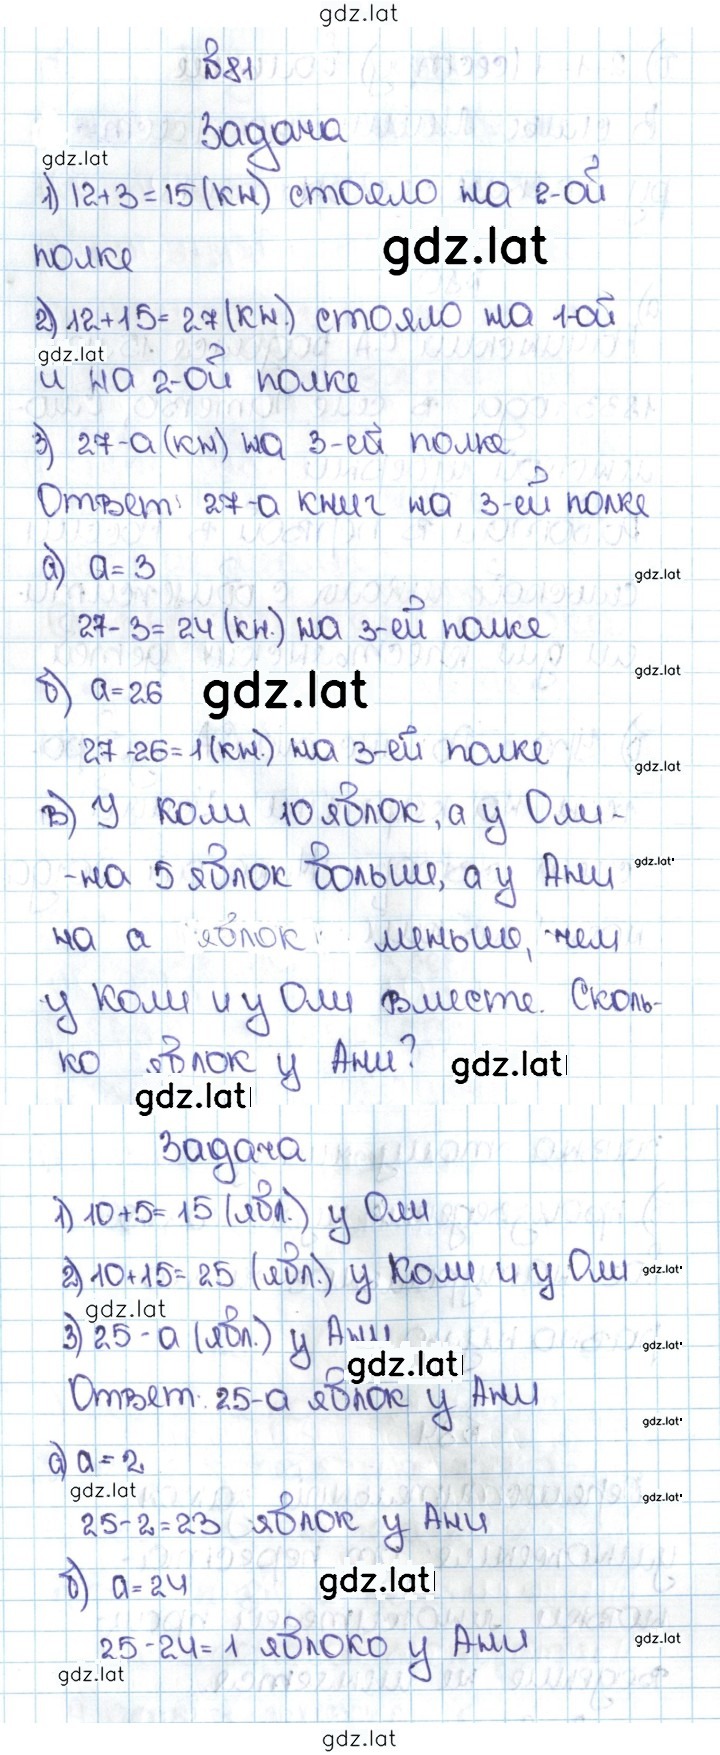 gdz.lat
В81
Задача
gdz.lat
1) 12+3=15 (кн) стояло на 2-ой
полке
gdz.lat
2) 12+15=27 (кн.) стояло на 1-ой
gdz.lat
и на 2-ой полке
3) 27-а (кн) на 3-ей полке
Ответ: 27-а книг на 3-ей полке
а) а=3
gdz.lat
27-3=24 (кн.) на 3-ей полке
gdz.lat
б) а=26
gdz.lat
27-26=1 (кн.) на 3-ей полке
gdz.lat
в) У Коли 10 яблок, а у Оли-
-на 5 яблок больше, а у Ани
gdz.lat
на а яблок меньше, чем
у Коли и у Оли вместе. Сколь-
ко яблок у Ани?
gdz.lat
gdz.lat
Задача
1) 10+5=15 (ябл.) у Оли
2) 10+15=25 (ябл.) у Коли и у Оли
gdz.lat
gdz.lat
3) 25-а (ябл.) у Ани
gdz.lat
gdz.lat
Ответ: 25-а яблок у Ани
gdz.lat
а) а=2
gdz.lat
gdz.lat
25-2=23 яблок у Ани
б) а=24
gdz.lat
25-24=1 яблоко у Ани
gdz.lat
gdz.lat
gdz.lat